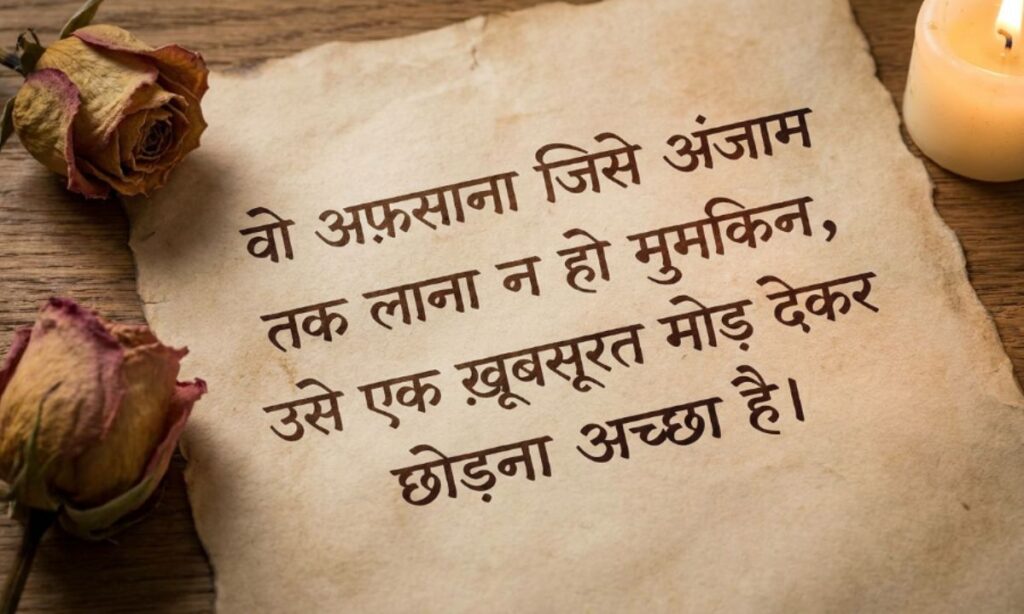 वो अफ़साना जिसे अंजाम
तक लाना न हो मुमकिन,
उसे एक ख़ूबसूरत मोड़ देकर
छोड़ना अच्छा है।